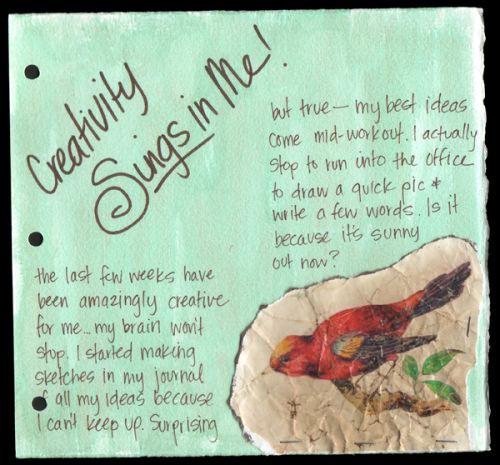 Creativity
Sings in Me!
the last few weeks have
been amazingly creative
for me... my brain won't
stop. I started making
sketches in my journal
f all my ideas because
I can't keep up. Surprising
but true — my best ideas
come mid-workout. I actually
stop to run into the office
to draw a quick pic &
write a few words. Is it
because it's sunny
out now?